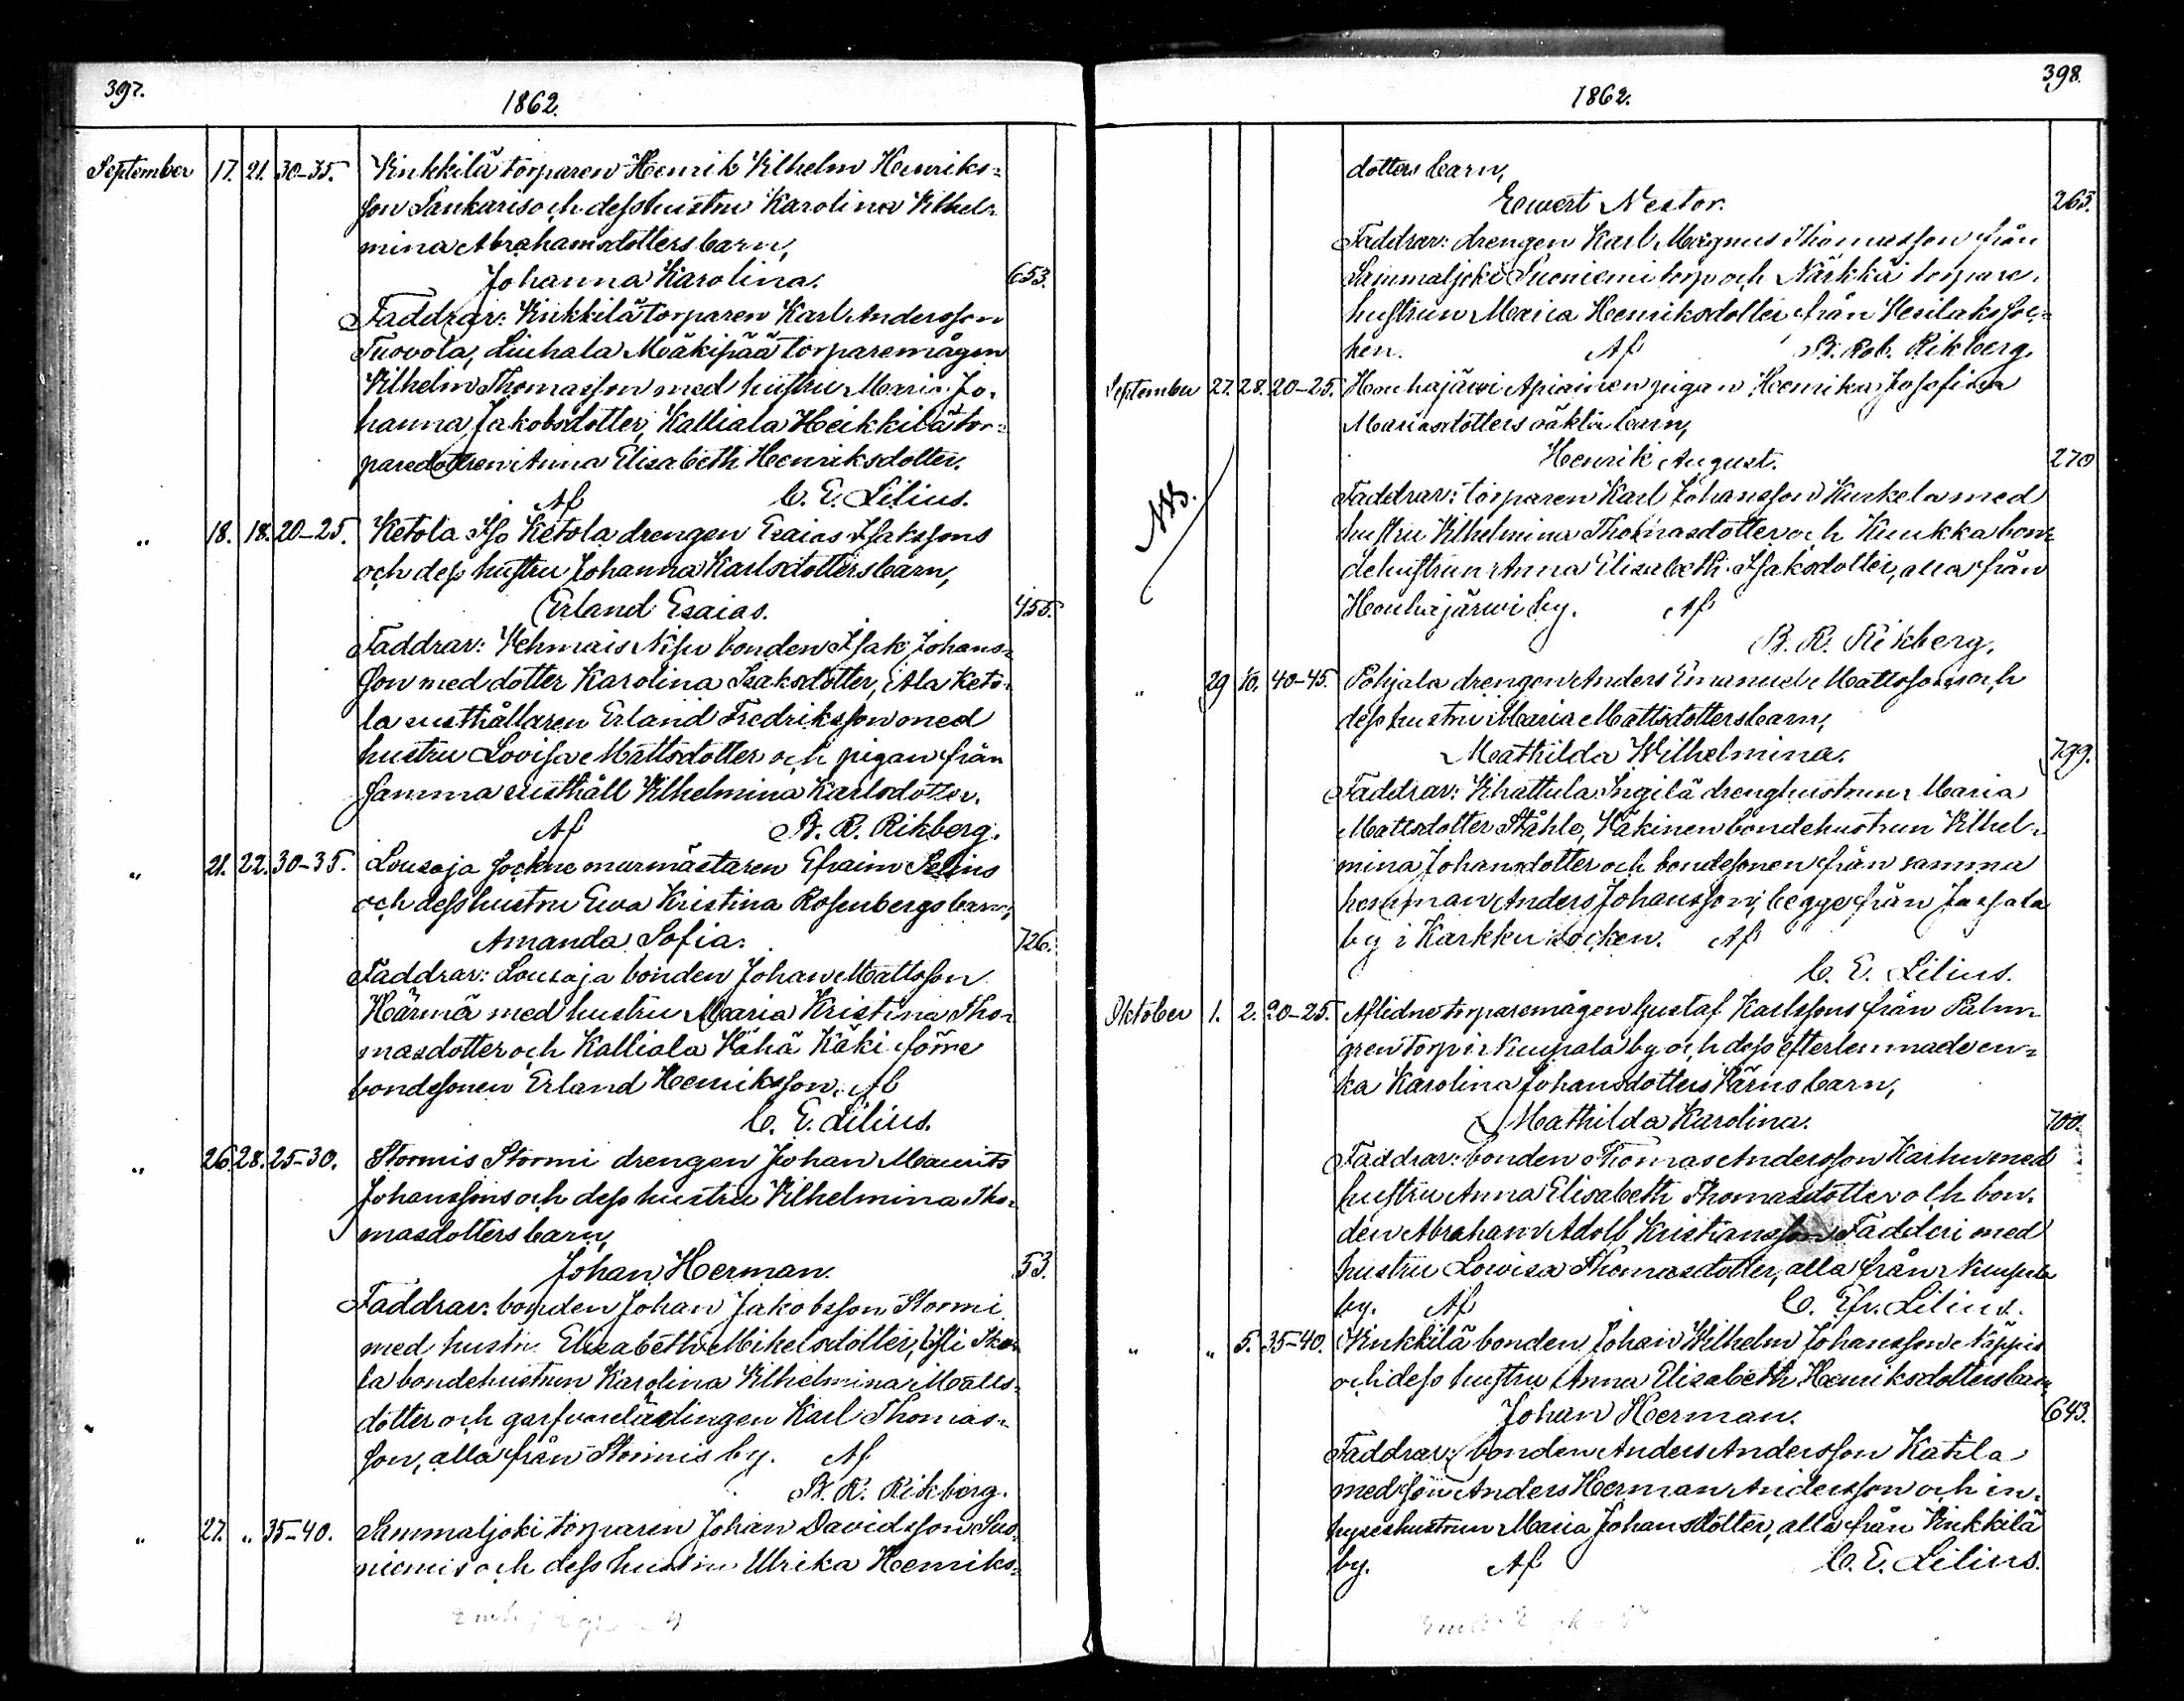 397.
1862.
September 17. 21. 30-35. Kinkkilä torparen Henrik Vilhelm Henriks-
son Sankaris och dess hustru Karolina Vilhel-
mina Abrahamsdotters barn,
Johanna Karolina. 653.
Faddrar: Kinkkilä torparen Karl Andersson
Tuovola, Liuhala Mäkipää torparemågen
Vilhelm Thomasson med hustru Maria Jo-
hanna Jakobsdotter, Kalliala Heikkilä tor-
paredottren Anna Elisabeth Henriksdotter.
Af C. E. Lilius.
" 18. 18. 20-25. Ketola Iso Ketola drengen Esaias Isakssons
och dess hustru Johanna Karlsdotters barn,
Erland Esaias. 455.
Faddrar: Vehmais bonden Isak Johans-
son med dotter Karolina Isaksdotter, Ala Keto-
la rusthållaren Erland Fredriksson med
hustru Lovisa Mattsdotter och pigan från
samma rusthåll Vilhelmina Karlsdotter.
Af B. R. Rikberg.
" 21. 22. 30-35. Lousaja sockne murmästaren Efraim Selins
och dess hustru Eva Kristina Rosenbergs barn,
Amanda Sofia. 726.
Faddrar: Lousaja bonden Johan Mattsson
Härmä med hustru Maria Kristina Tho-
masdotter och Kalliala Vähä Käki
bondesonen Erland Henriksson. Af
C. E. Lilius.
" 26. 28. 25-30. Stormis Stormi drengen Johan Maurits
Johanssons och dess hustru Vilhelmina Tho-
masdotters barn,
Johan Herman. 53.
Faddrar: bonden Johan Jakobsson Stormi
med hustru Elisabeth Mikelsdotter,
la bondehustrun Karolina Vilhelmina Matts-
dotter och garfvarelärlingen Karl Thomas-
son, alla från Stormis by. Af
B. R. Rikberg.
" 27. " 35-40. Sammaljoki torparen Johan Davidsson Suo-
niemis och dess hustru Ulrika Henriks-
398.
1862.
dotters barn,
Ewert Nestor. 265.
Faddrar: drengen Karl Magnus Thomasson från
Sammaljoki Suoniemi torp och Närkkä torpare-
hustrun Maria Henriksdotter från Vesilaks soc-
ken. Af B. Rob. Rikberg.
September 27. 28. 20-25. Houhajärvi Apiainen pigan Henrika Josefina
Mariasdotters oäkta barn,
Henrik August. 270
NB.
Faddrar: torparen Karl Johansson Kurkela med
hustru Vilhelmina Thomasdotter och Kuukka bon-
dehustrun Anna Elisabeth Isaksdotter, alla från
Houhajärwi by. Af
B. R. Rikberg.
" 29 10. 40-45. Pohjala drengen Anders Emanuel Mattssons och
dess hustru Maria Mattsdotters barn,
Mathilda Wilhelmina. 799.
Faddrar: Vihattula Ingilä drenghustrun Maria
Mattsdotter Ståhle, Väkinen bondehustrun Vilhel-
mina Johansdotter och bondesonen från samma
hemman Anders Johansson, begge från
by i Karkku socken. Af
C. E. Lilius.
Oktober 1. 2. 20-25. Aflidne torparemågen Gustaf Karlssons från Palm-
gren torp i by och dess efterlemnade en-
ka Karolina Johansdotters Pärns barn,
Mathilda Karolina. 700.
Faddrar: bonden Thomas Andersson Karhu med
hustru Anna Elisabeth Thomasdotter och bon-
den Abraham Adolf Kristiansson Fädderi med
hustru Lowisa Thomasdotter, alla från
by. Af C. Efr. Lilius.
" " 5. 35-40. Kinkkilä bonden Johan Wilhelm Johansson Näppis
och dess hustru Anna Elisabeth Henriksdotters barn
Johan Herman. 643.
Faddrar: bonden Anders Andersson Katila
med son Anders Herman Andersson och in-
hyseshustrun Maria Johansdotter, alla från Kinkkilä
by. Af C. E. Lilius.